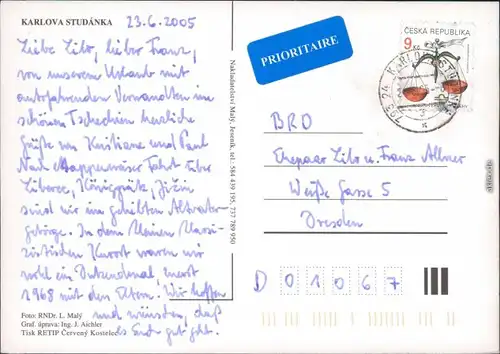 KARLOVA STUDÁNKA
23.6.2005
Liebe Lilo, lieber Franz,
von unserem Urlaub mit
autofahrenden Verwandten im
schönen Tschechien herzliche
Grüße von Kristiane und Paul
Nach Fahrt über
Liberec, Jičin
sind wir im geliebten Altvater-
gebirge. In dem kleinen klassi-
zistischen Kurort waren wir
wohl ein Dutzendmal zuerst
1968 mit den Eltern. Wir hoffen
und wünschen, daß
es Euch gut geht.
Foto: RNDr. L. Malý
Graf. úprava: Ing. J. Aichler
Tisk RETIP Červený Kostelec
Nakladatelství Malý, Jeseník, tel.: 584 439 195, 737 789 950
PRIORITAIRE
ČESKÁ REPUBLIKA
9 Kč
BRD
Ehepaar Lilo u. Franz Allner
Weiße Gasse 5
Dresden
D 01067